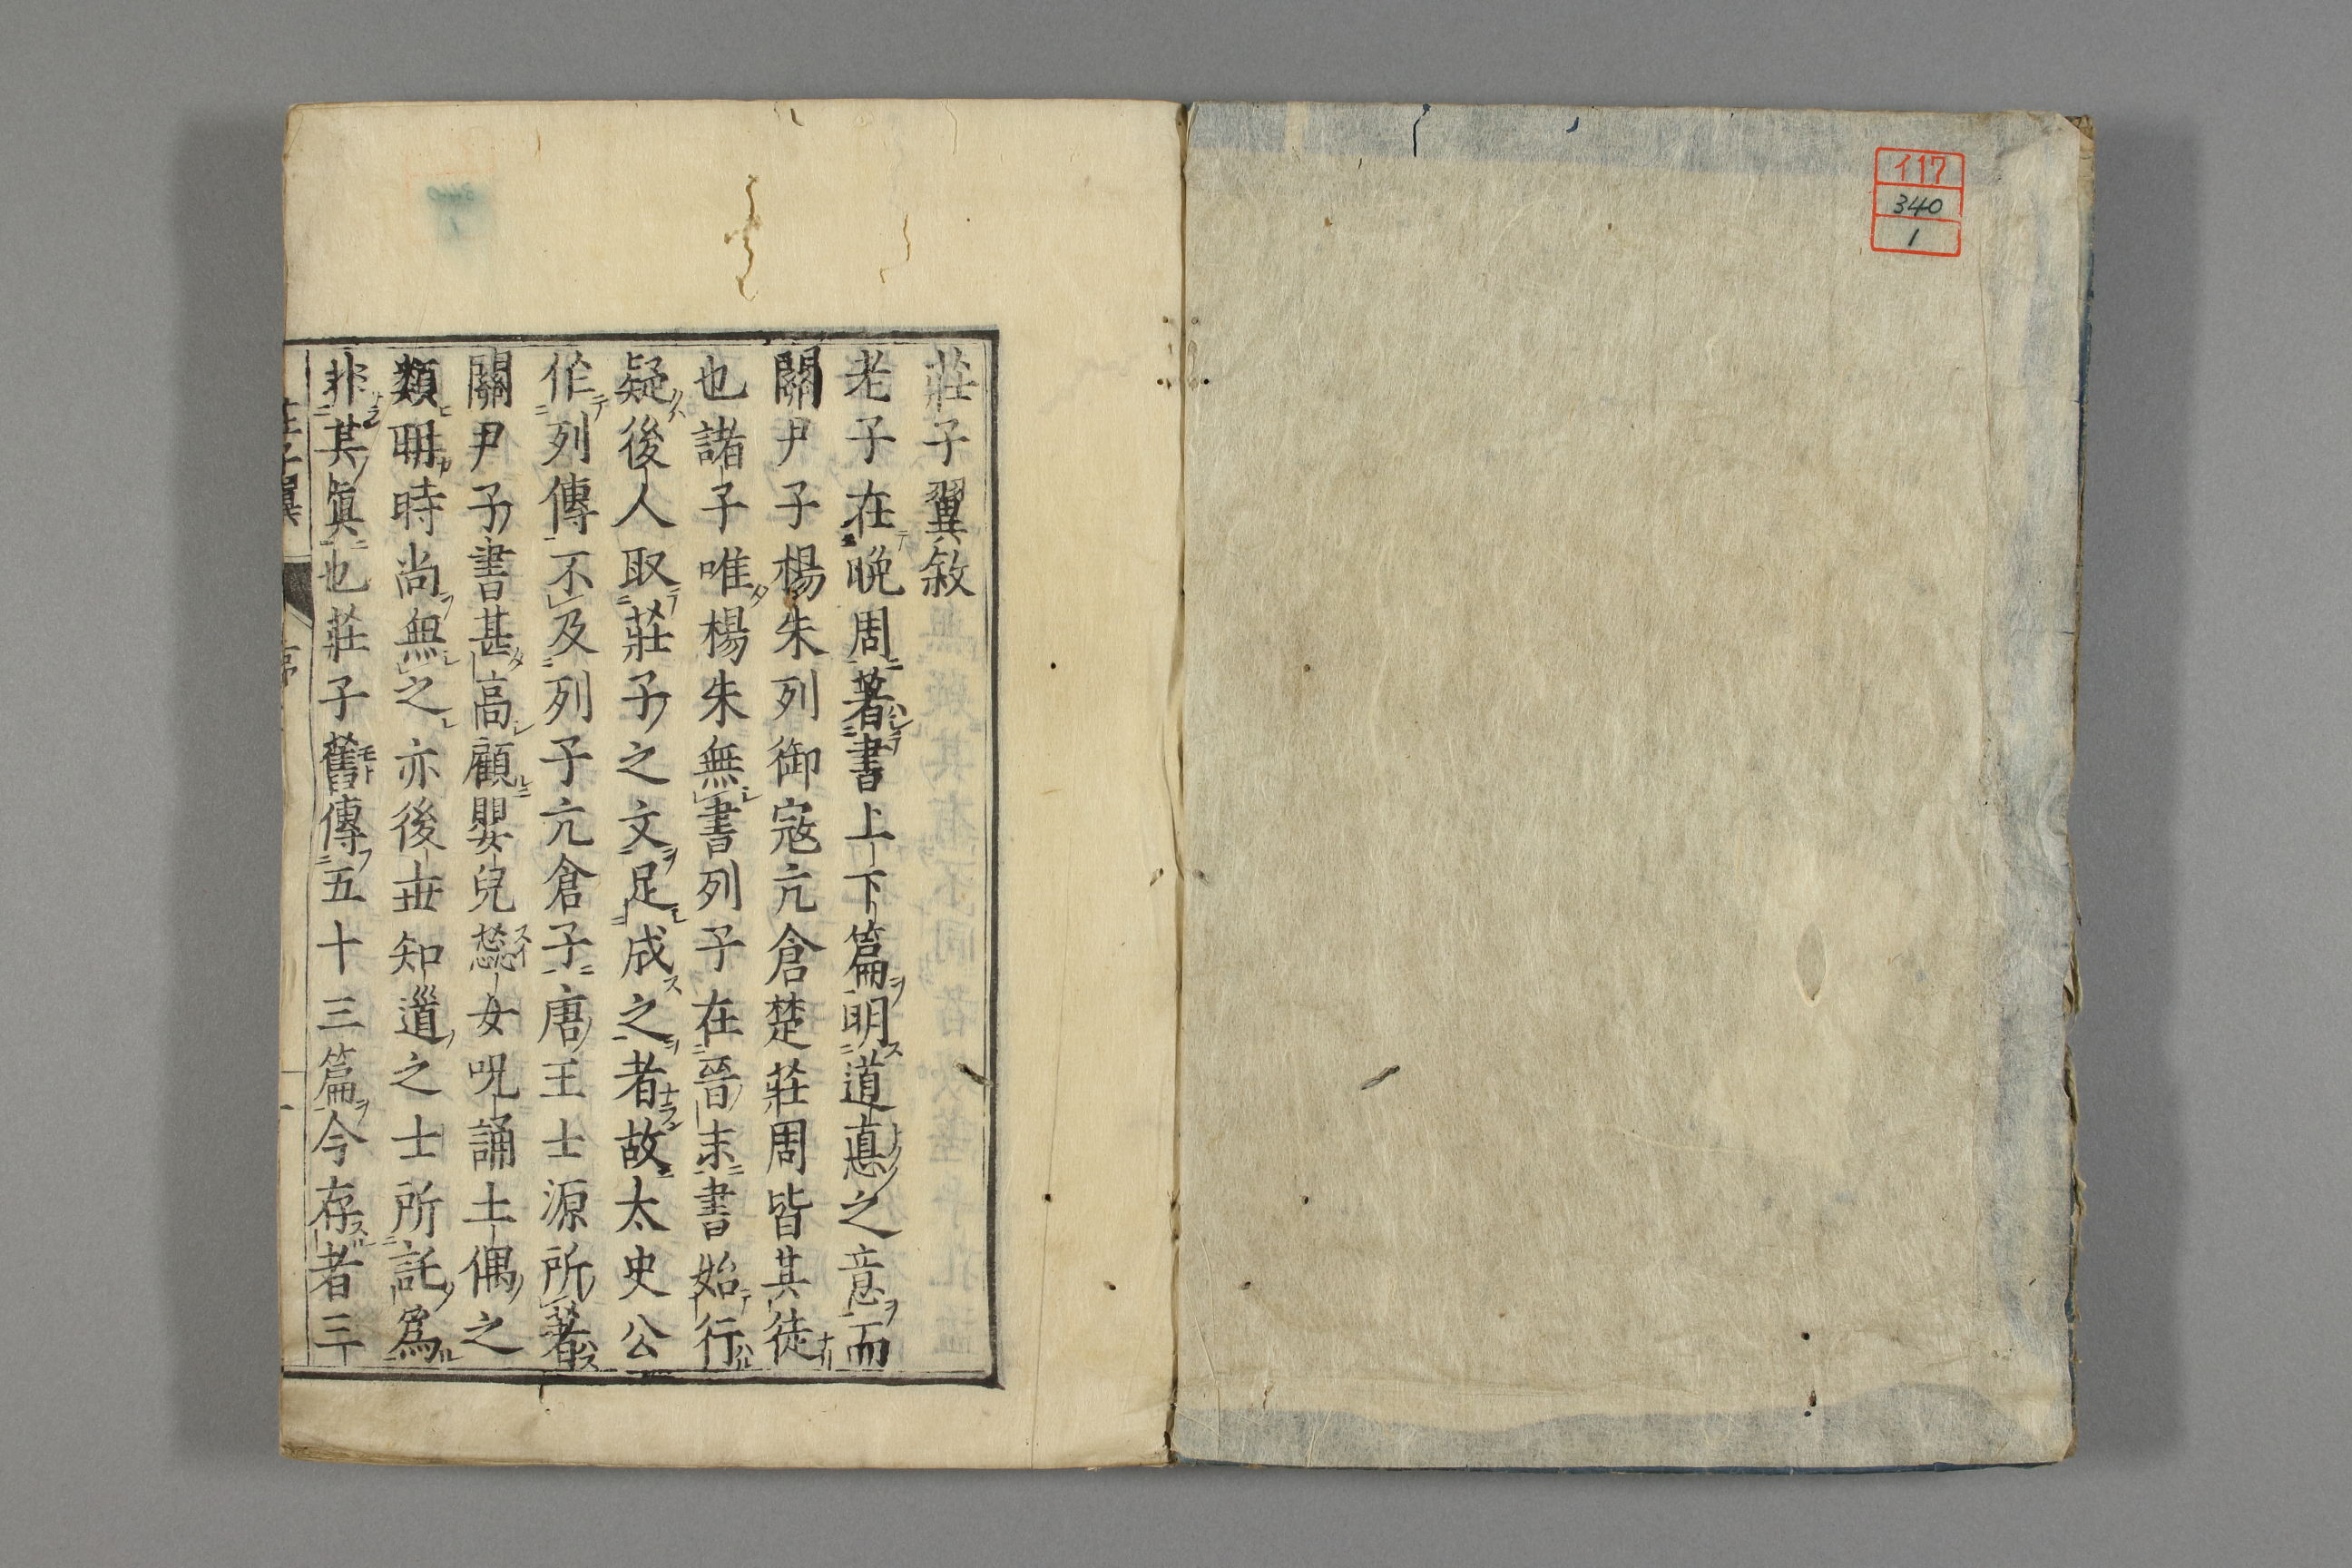 イ17
340
1
莊子翼敘
老子在晚周著書上下篇明道悳之意而
關尹子楊朱列御寇亢倉楚莊周皆其徒
也諸子唯楊朱無書列子在晉末書始行
疑後人取莊子之文足成之者故太史公
作列傳不及列子亢倉子唐王士源所著
關尹子書甚高顧嬰兒蕊女呪誦土偶之
類聃時尚無之亦後世知道之士所託爲
非其眞也莊子舊傳五十三篇今存者三
莊子翼